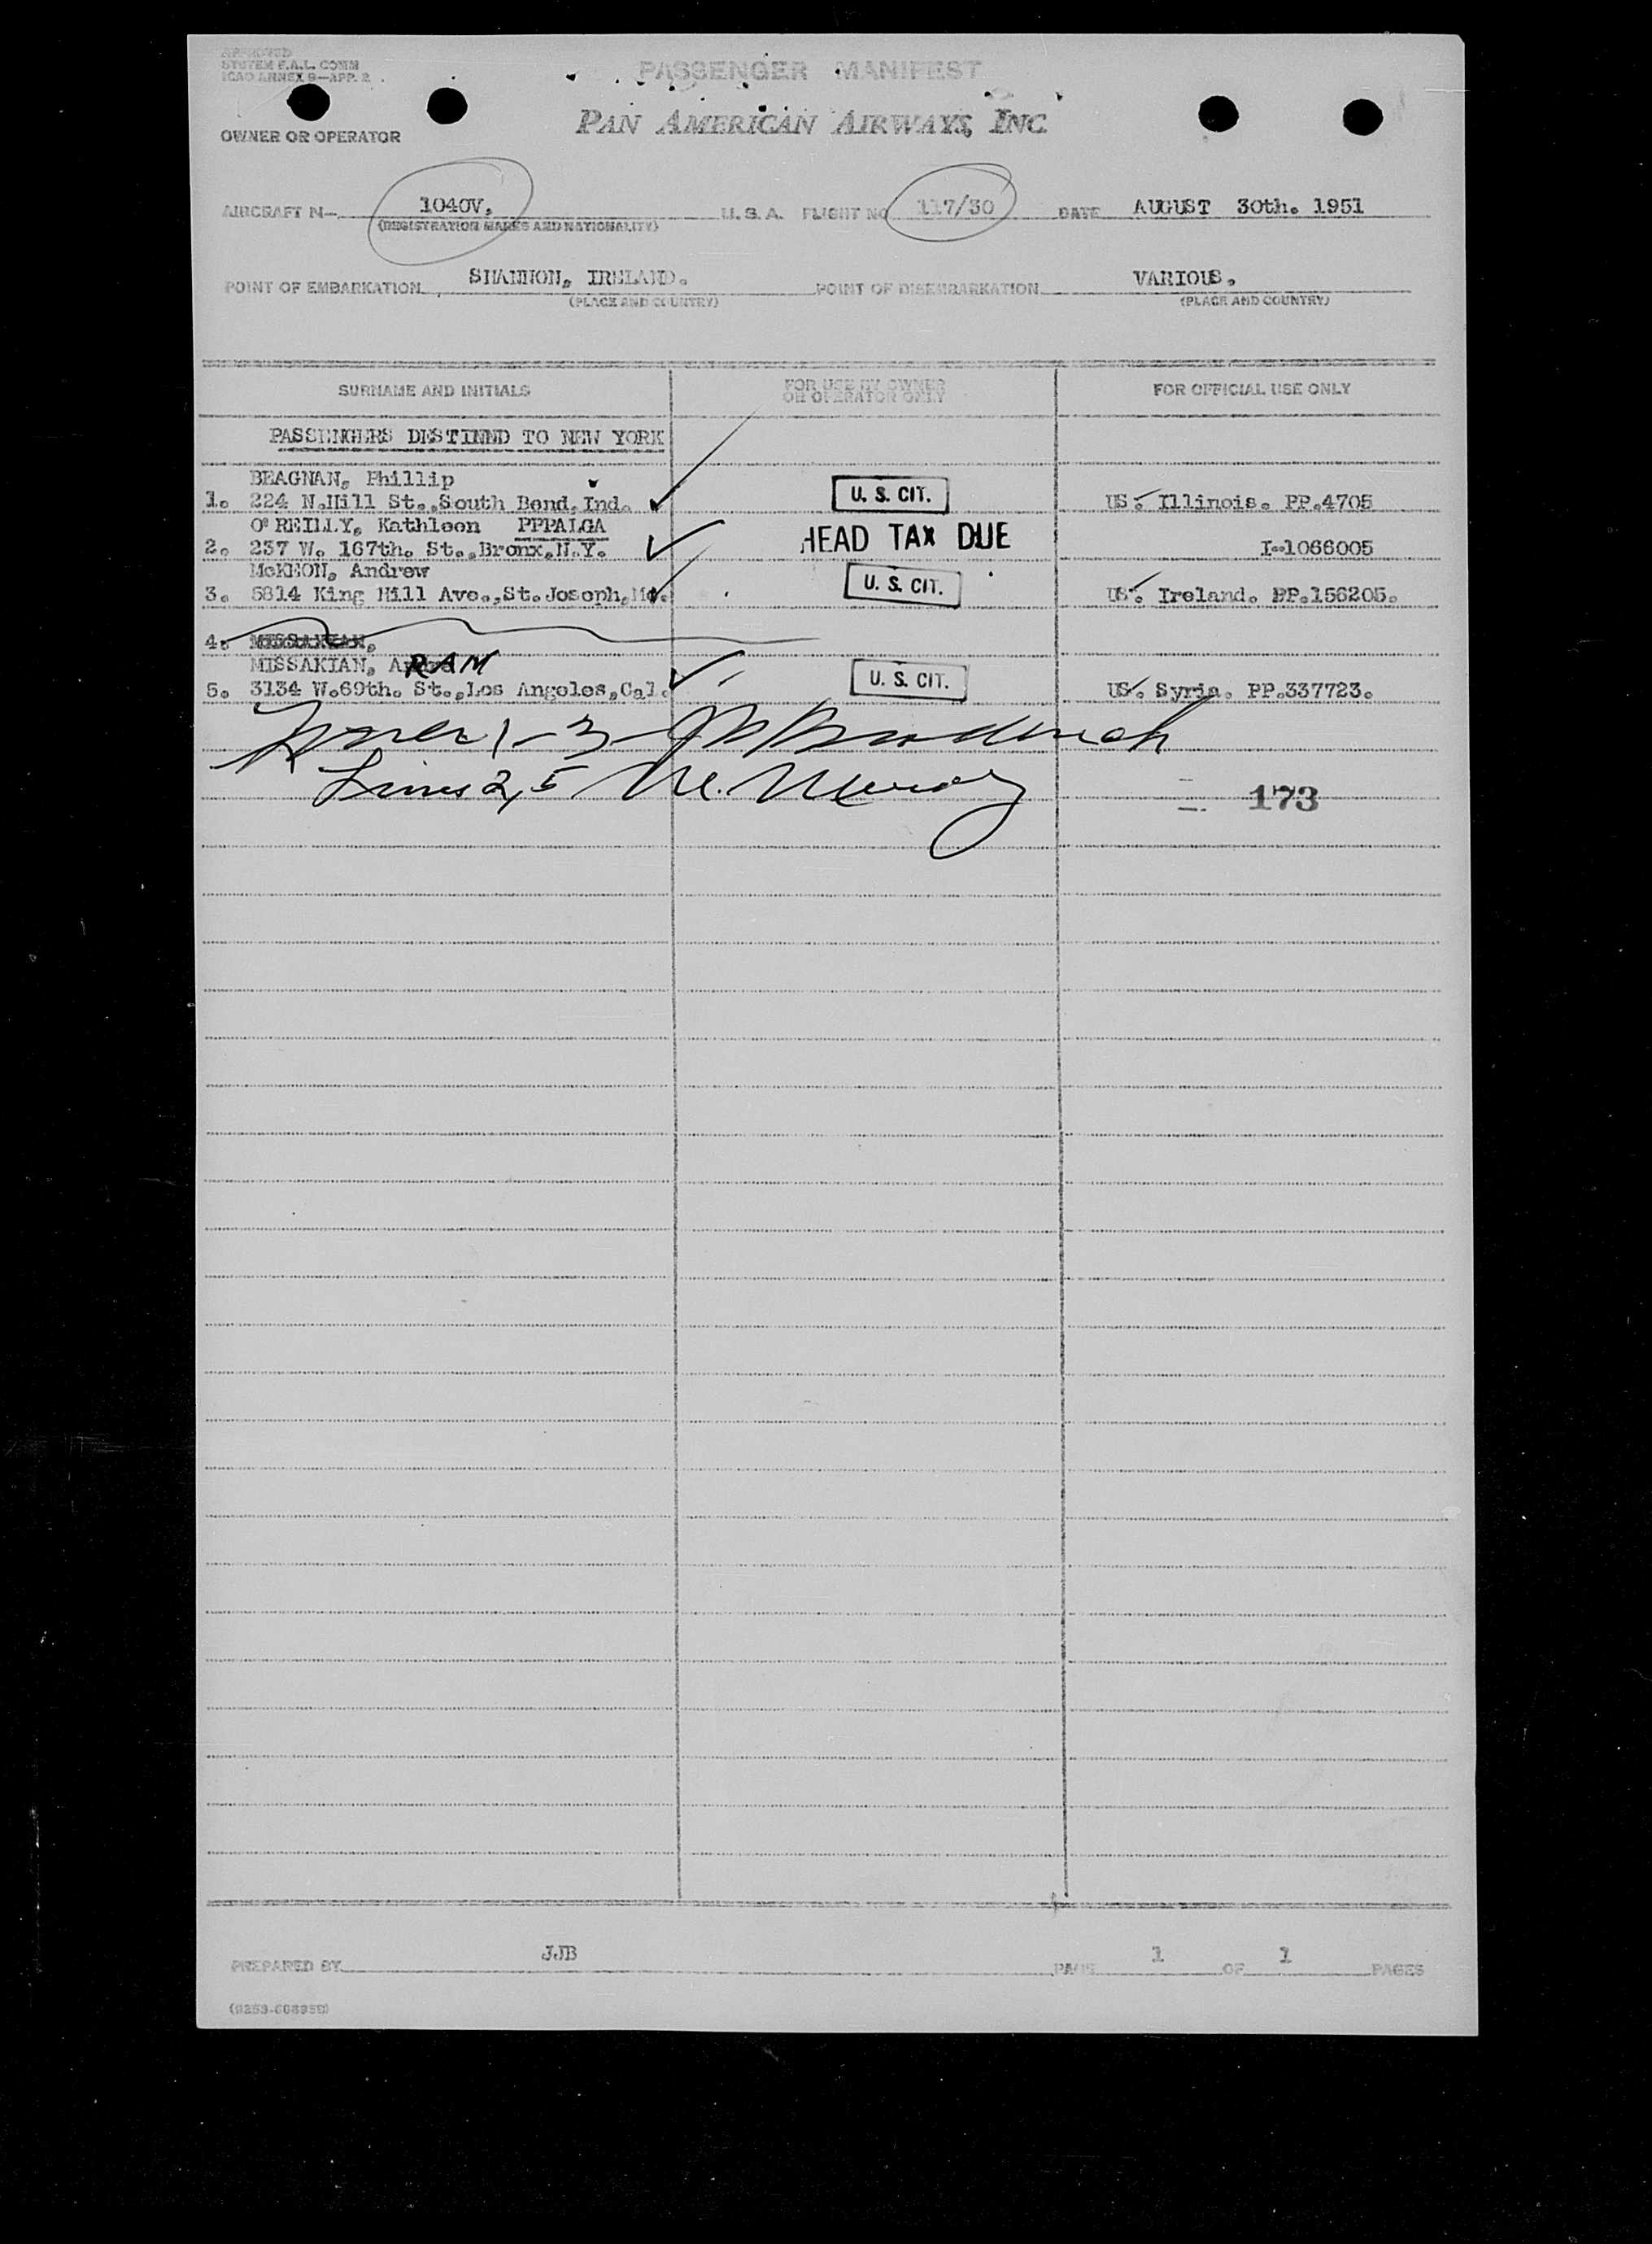 APPROVED
SYSTEM F.A.L. COMM
ICAO ANNEX 9—APP. 2
PASSENGER MANIFEST
PAN AMERICAN AIRWAYS, INC.
OWNER OR OPERATOR
AIRCRAFT N— 1040V. U. S. A. FLIGHT NO 117/30 DATE AUGUST 30th. 1951
(REGISTRATION MARKS AND NATIONALITY)
POINT OF EMBARKATION SHANNON, IRELAND. POINT OF DISEMBARKATION VARIOUS.
(PLACE AND COUNTRY) (PLACE AND COUNTRY)
SURNAME AND INITIALS FOR USE BY OWNER OR OPERATOR ONLY FOR OFFICIAL USE ONLY
PASSENGERS DESTINED TO NEW YORK
BEAGNAN, Phillip
1. 224 N.Hill St.,South Bend,Ind. U. S. CIT. US. Illinois. PP.4705
O'REILLY, Kathleen PPPALGA
2. 237 W. 167th. St.,Bronx,N.Y. HEAD TAX DUE I-1066005
McKEON, Andrew
3. 5814 King Hill Ave.,St.Joseph,Mo. U. S. CIT. US. Ireland. PP.156205.
4. MISSAKIAN,
MISSAKIAN, ARAM
5. 3134 W.69th. St.,Los Angeles,Cal. U. S. CIT. US. Syria. PP.337723.
1-3
Lines 2,5 M.
173
PREPARED BY JJB PAGE 1 OF 1 PAGES